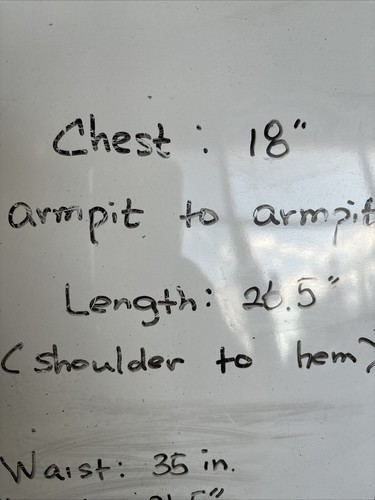 Chest: 18"
armpit to armpit
Length: 26.5"
(shoulder to hem)
Waist: 35 in.